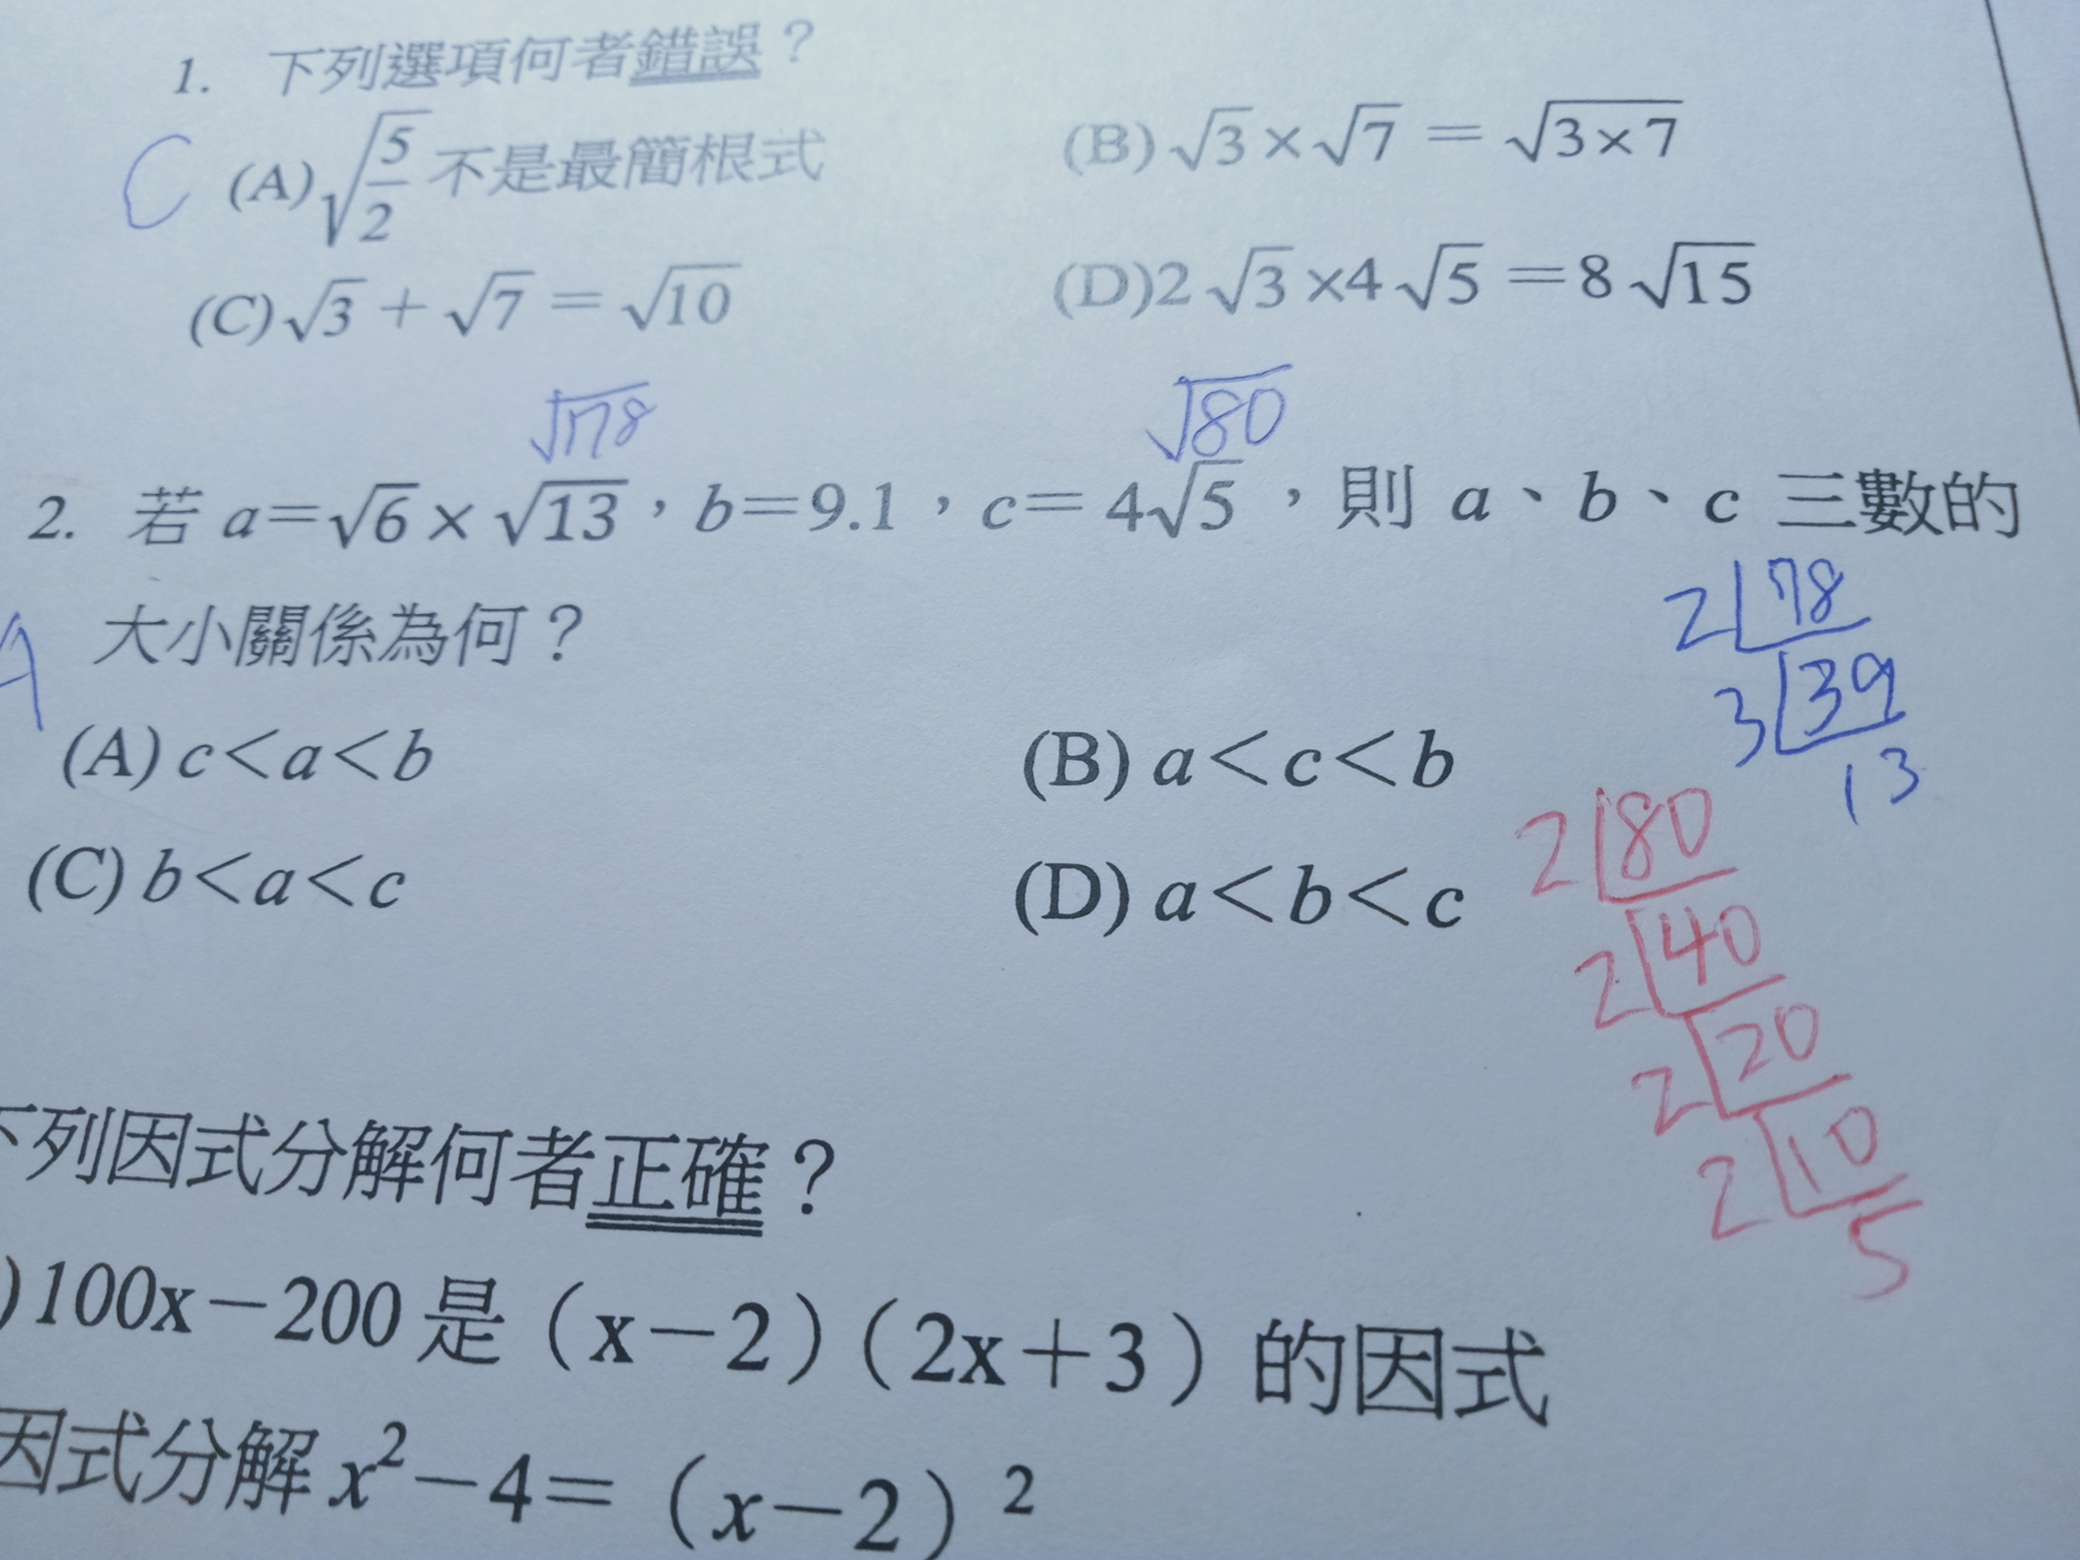 1. 下列選項何者錯誤？
C (A) √(5/2) 不是最簡根式 (B) √3 × √7 = √(3×7)
(C) √3 + √7 = √10 (D) 2√3 ×4√5 =8√15
√78 √80
2. 若 a=√6 × √13，b=9.1，c= 4√5，則 a、b、c 三數的
大小關係為何？
(A) c<a<b (B) a<c<b
(C) b<a<c (D) a<b<c
2 78
3 39
13
2 80
2 40
2 20
2 10
5
下列因式分解何者正確？
)100x－200 是（x－2）（2x＋3）的因式
因式分解 x²－4=（x－2）²